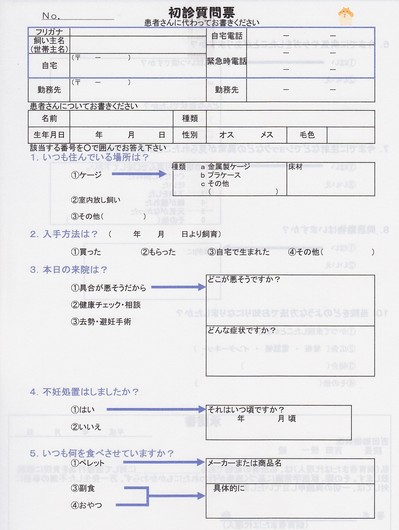 No.
初診質問票
患者さんに代わってお書きください
フリガナ
飼い主名
(世帯主名)
自宅電話 ー ー
ー ー
自宅
(〒 ー )
緊急時電話 ー ー
ー ー
勤務先
(〒 ー )
勤務先 ー ー
患者さんについてお書きください
名前 種類
生年月日 年 月 日 性別 オス メス 毛色
該当する番号を〇で囲んでお答え下さい
1. いつも住んでいる場所は?
①ケージ
種類 a 金属製ケージ
b プラケース
c その他
( )
床材
②室内放し飼い
③その他( )
2. 入手方法は? ( 年 月 日より飼育)
①買った ②もらった ③自宅で生まれた ④その他( )
3. 本日の来院は?
①具合が悪そうだから
どこが悪そうですか?
②健康チェック・相談
③去勢・避妊手術
どんな症状ですか?
4. 不妊処置はしましたか?
①はい
それはいつ頃ですか?
年 月 頃
②いいえ
5. いつも何を食べさせていますか?
①ペレット
メーカーまたは商品名
③副食
具体的に
④おやつ